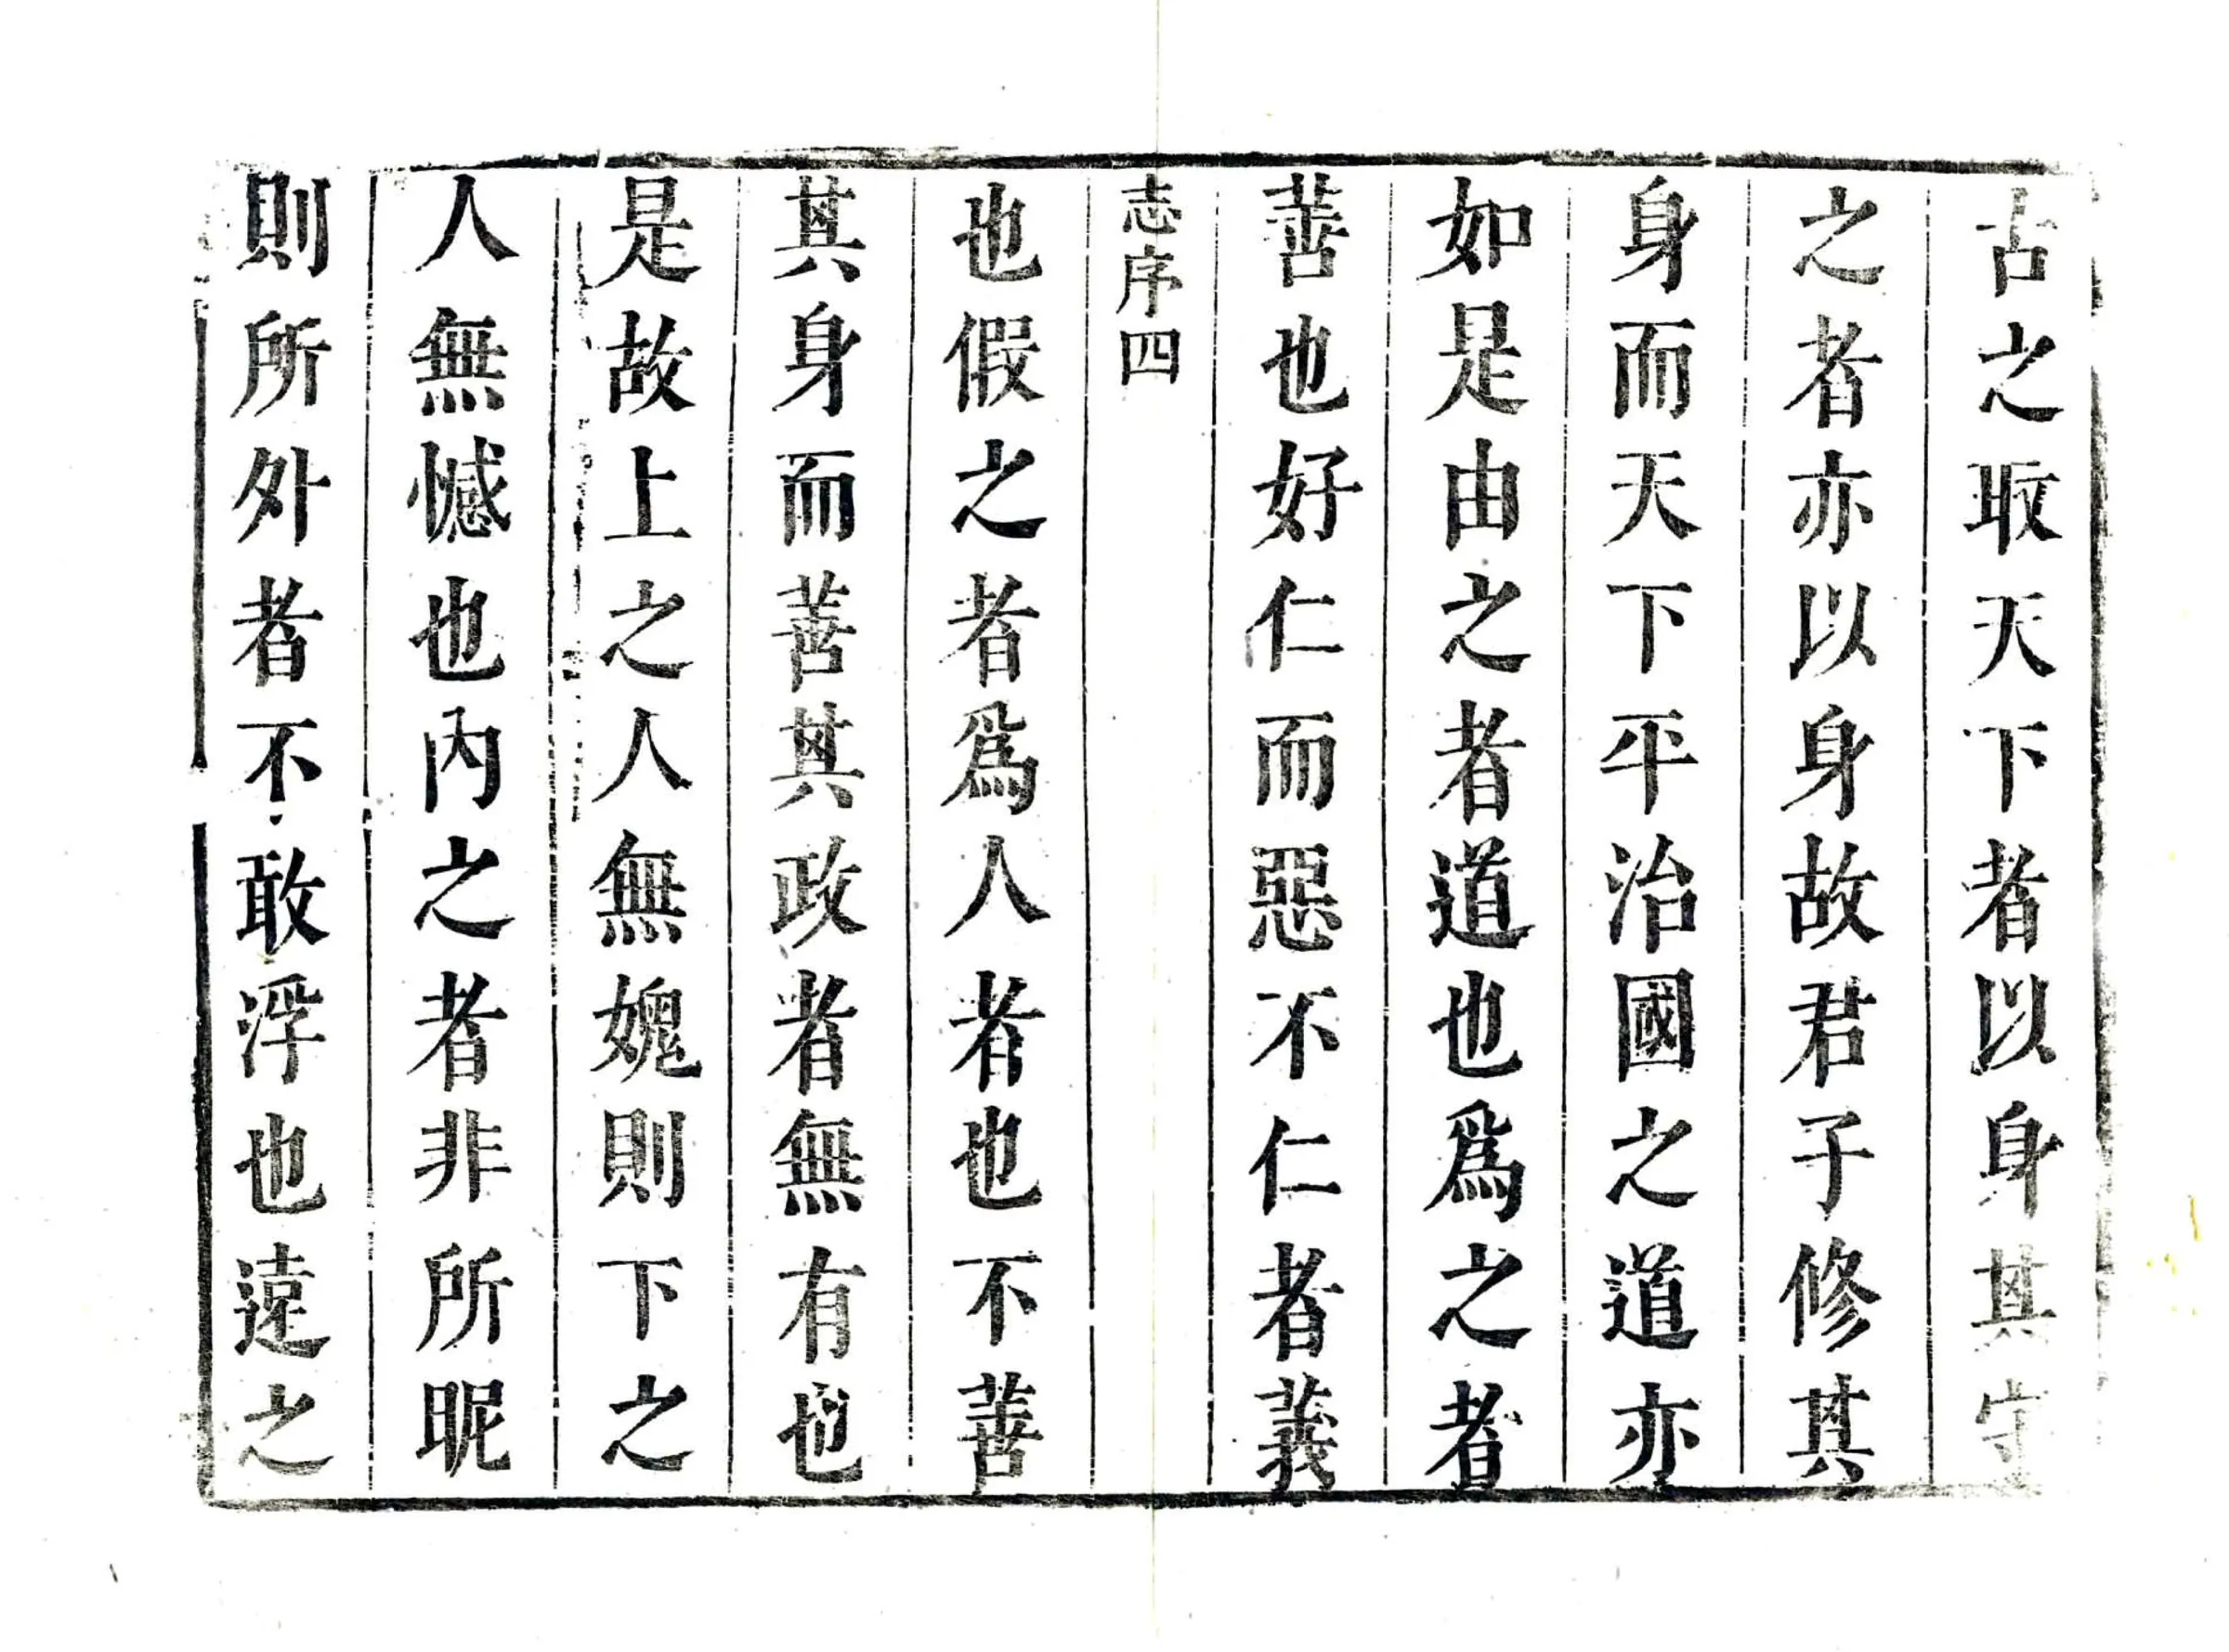 古之取天下者以身其守
之者亦以身故君子修其
身而天下平治國之道亦
如是由之者道也爲之者
善也好仁而惡不仁者義
志序四
也假之者爲人者也不善
其身而善其政者無有也
是故上之人無媿則下之
人無憾也內之者非所昵
則所外者不敢浮也遠之